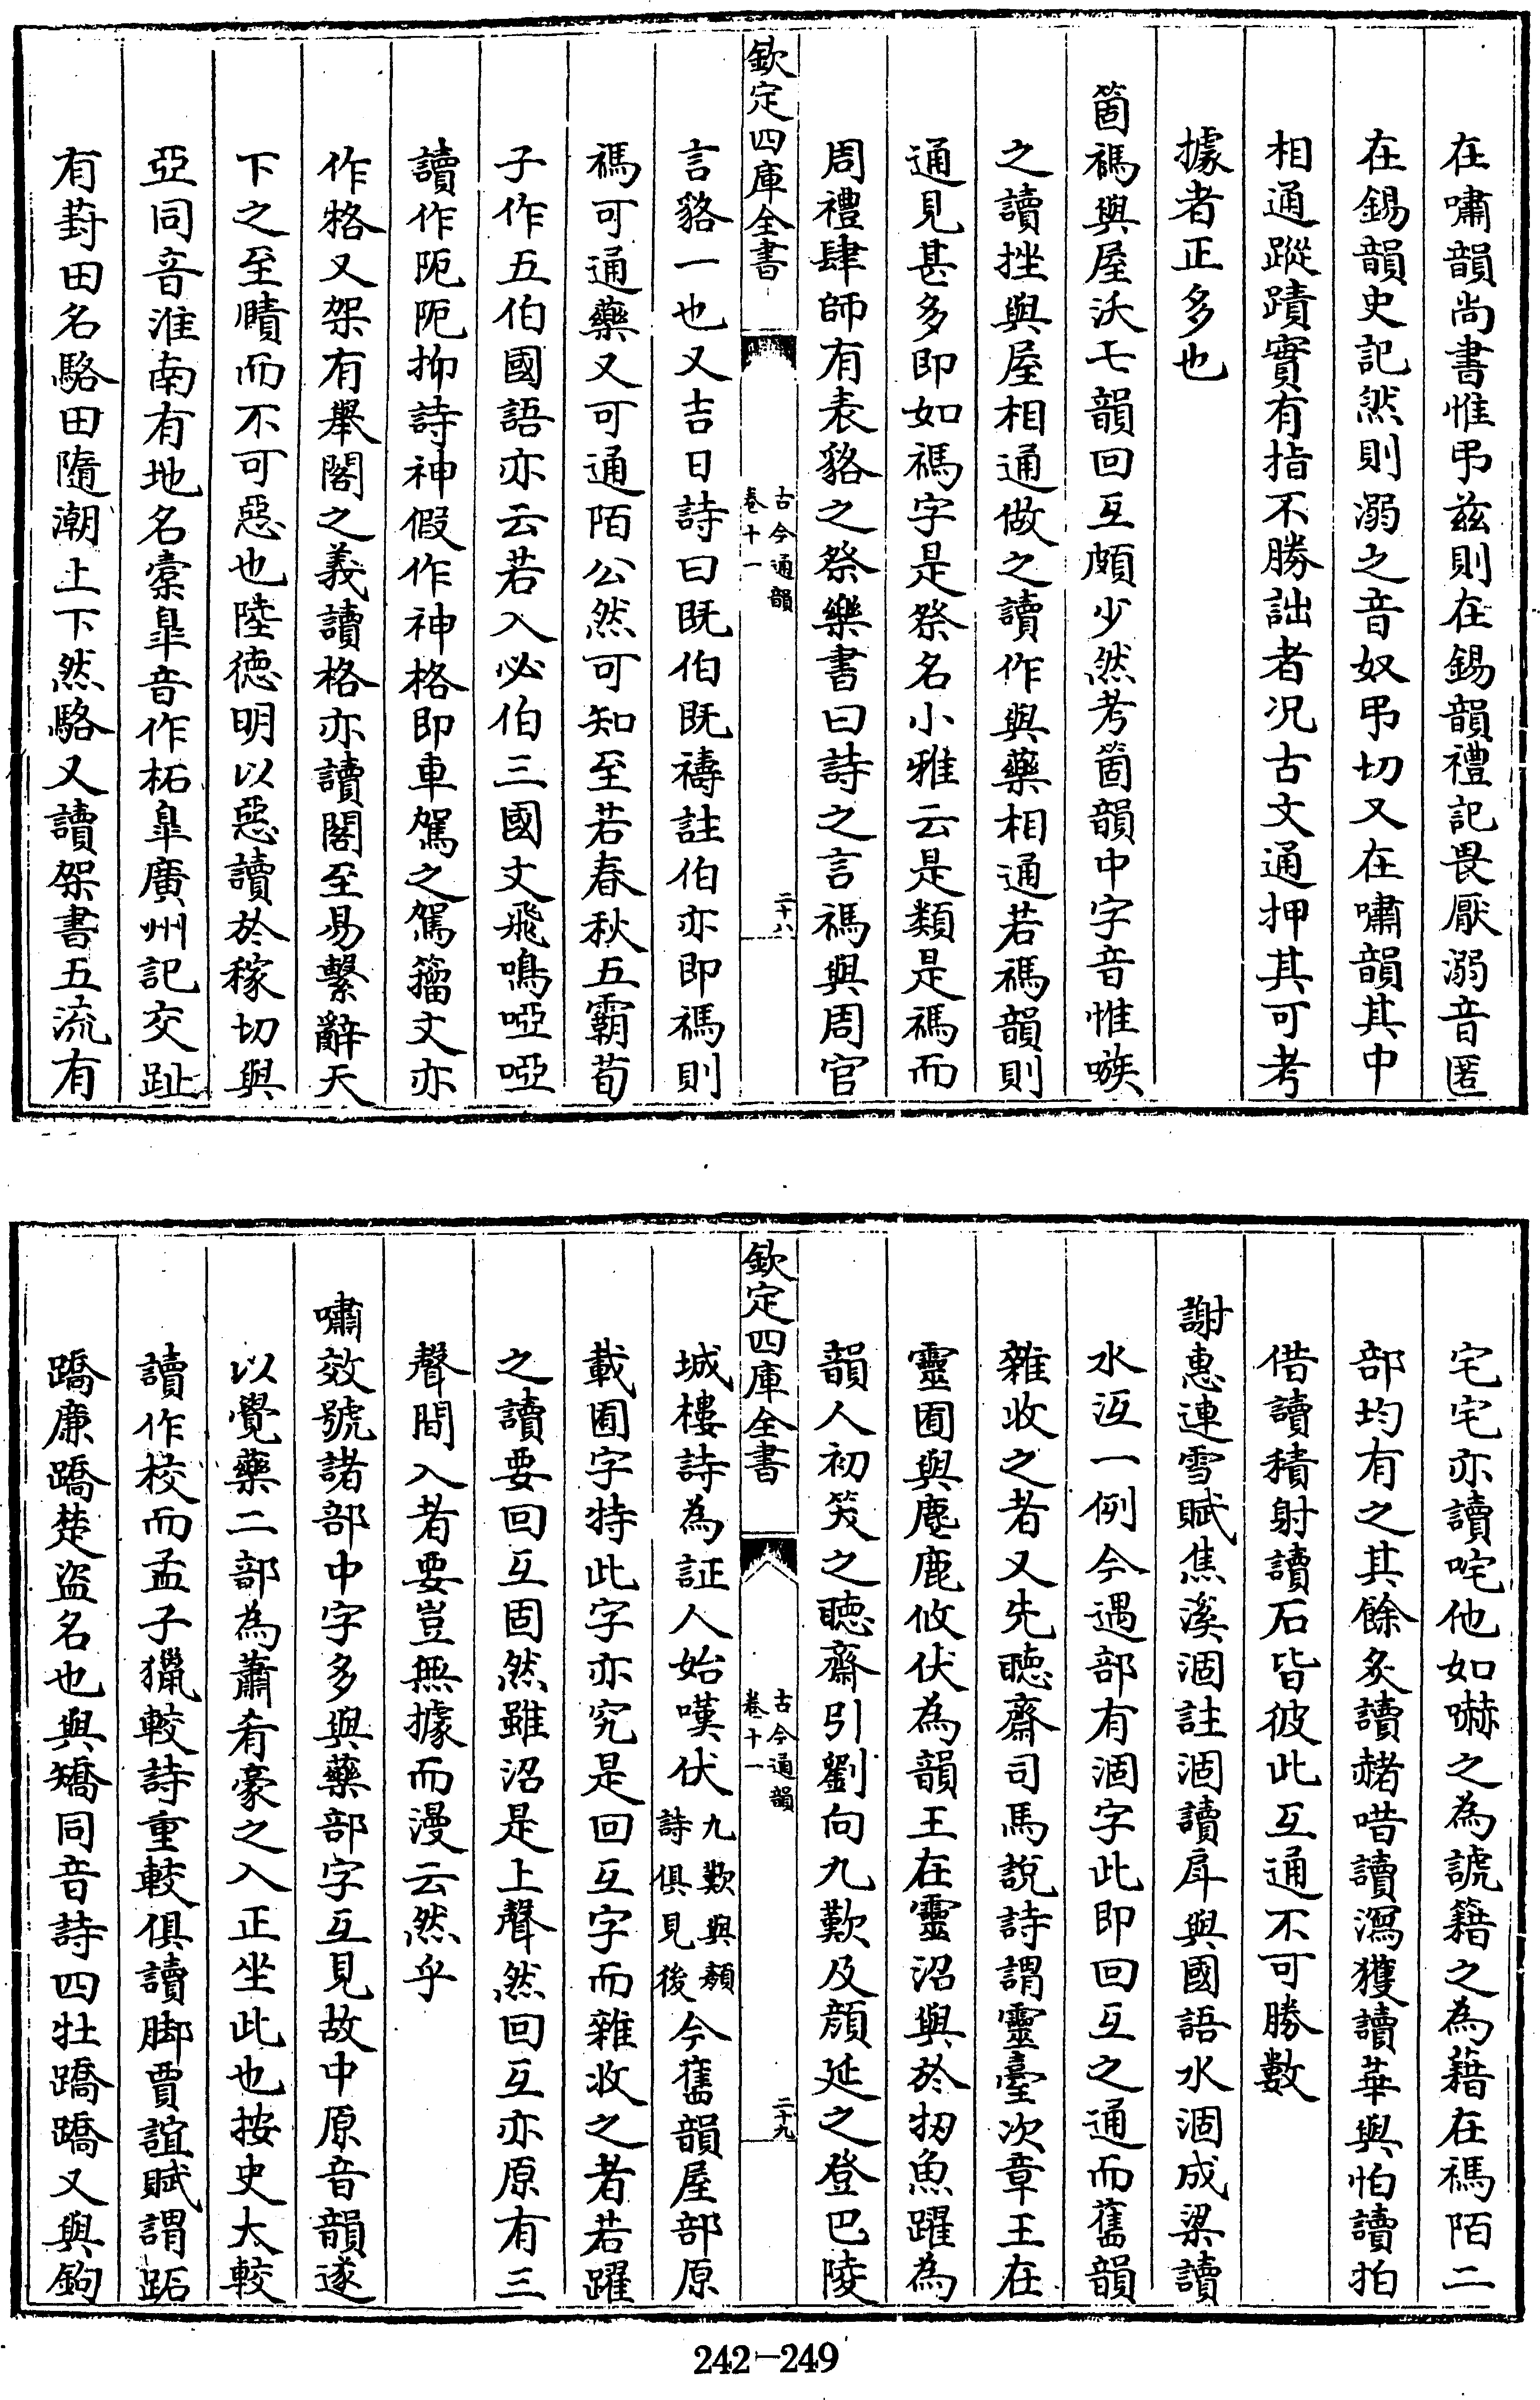 在嘯韻尚書惟弔茲則在錫韻禮記畏厭溺音匿
在錫韻史記然則溺之音奴弔切又在嘯韻其中
相通蹤蹟實有指不勝詘者况古文通押其可考
據者正多也
箇禡與屋沃七韻回互頗少然考箇韻中字音惟㗵
之讀挫與屋相通做之讀作與藥相通若禡韻則
通見甚多即如禡字是祭名小雅云是類是禡而
周禮肆師有表貉之祭樂書曰詩之言禡與周官
欽定四庫全書
古今通韻
卷十一
二十八
言貉一也又吉日詩曰既伯既禱註伯亦即禡則
禡可通藥又可通陌公然可知至若春秋五霸荀
子作五伯國語亦云若入必伯三國文飛鳴啞啞
讀作阨阨抑詩神假作神格即車駕之駕籀文亦
作𤙑又架有舉閣之義讀格亦讀閣至易繫辭天
下之至賾而不可惡也陸徳明以惡讀於稼切與
亞同音淮南有地名橐臯音作柘臯廣州記交趾
有葑田名駱田隨潮上下然駱又讀架書五流有
宅宅亦讀咤他如嚇之為諕籍之為藉在禡陌二
部均有之其餘炙讀赭唶讀瀉獲讀華與怕讀拍
借讀積射讀石皆彼此互通不可勝數
謝惠連雪賦焦溪涸註涸讀戽與國語水涸成梁讀
水沍一例今遇部有涸字此即回互之通而舊韻
雜收之者又先聽齋司馬說詩謂靈臺次章王在
靈囿與麀鹿攸伏為韻王在靈沼與於牣魚躍為
韻人初笑之聽齋引劉向九歎及顔延之登巴陵
欽定四庫全書
古今通韻
卷十一
二十九
城樓詩為証人始嘆伏九歎與顏詩俱見後今舊韻屋部原
載囿字特此字亦究是回互字而雜收之者若躍
之讀要回互固然雖沼是上聲然回互亦原有三
聲間入者要豈無據而漫云然乎
嘯效號諸部中字多與藥部字互見故中原音韻遂
以覺藥二部為蕭肴豪之入正坐此也按史大較
讀作校而孟子獵較詩重較俱讀脚賈誼賦謂跖
蹻廉蹻楚盜名也與矯同音詩四牡蹻蹻又與鉤
242-249